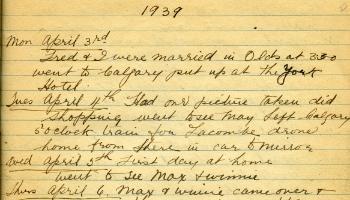 1939
Mon April 3rd
Fred & I were married in Olds at 3:30
went to Calgary put up at the York
Hotel.
Tues April 4th Had our picture taken did
Shopping went to see May Left Calgary
5 o'clock train for Lacombe drove
home from there in car to Mirror
Wed April 5th First day at home
went to see Max & winnie
Thurs April 6. Max & winnie came over &